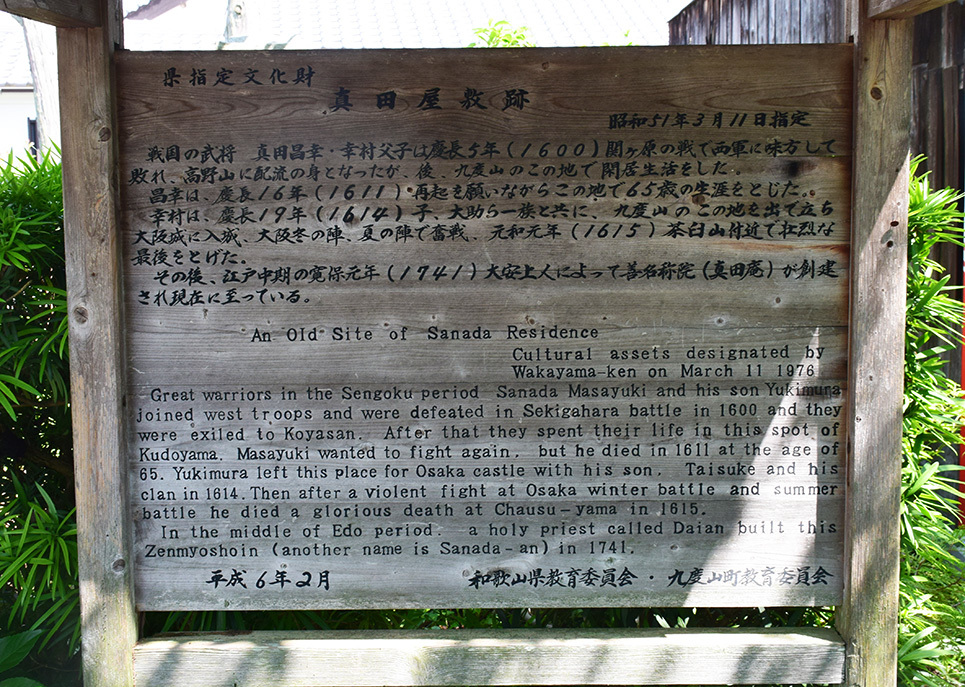 県指定文化財
真田屋敷跡
昭和51年3月11日指定
戦国の武将 真田昌幸・幸村父子は慶長5年(1600)関ヶ原の戦で西軍に味方して
敗れ、高野山に配流の身となったが、後、九度山のこの地で閑居生活をした。
昌幸は、慶長16年(1611)再起を願いながらこの地で65歳の生涯をとじた。
幸村は、慶長19年(1614)子、大助ら一族と共に、九度山のこの地を出て立ち
大阪城に入城、大阪冬の陣、夏の陣で奮戦、元和元年(1615)茶臼山付近で壮烈な
最後をとげた。
その後、江戸中期の寛保元年(1741)大安上人によって善名称院(真田庵)が創建
され現在に至っている。
An Old Site of Sanada Residence
Cultural assets designated by
Wakayama-ken on March 11 1976
Great warriors in the Sengoku period Sanada Masayuki and his son Yukimura
joined west troops and were defeated in Sekigahara battle in 1600 and they
were exiled to Koyasan. After that they spent their life in this spot of
Kudoyama. Masayuki wanted to fight again, but he died in 1611 at the age of
65. Yukimura left this place for Osaka castle with his son. Taisuke and his
clan in 1614. Then after a violent fight at Osaka winter battle and summer
battle he died a glorious death at Chausu-yama in 1615.
In the middle of Edo period. a holy priest called Daian built this
Zenmyoshoin (another name is Sanada-an) in 1741.
平成6年2月
和歌山県教育委員会・九度山町教育委員会